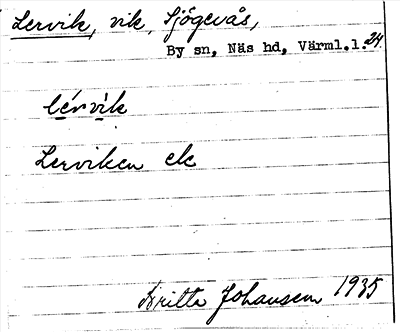 Lervik, vik, Sjögevås,
By sn, Näs hd, Värml.l. 24.
lérvik
Lerviken ek
Britta Johansen 1935